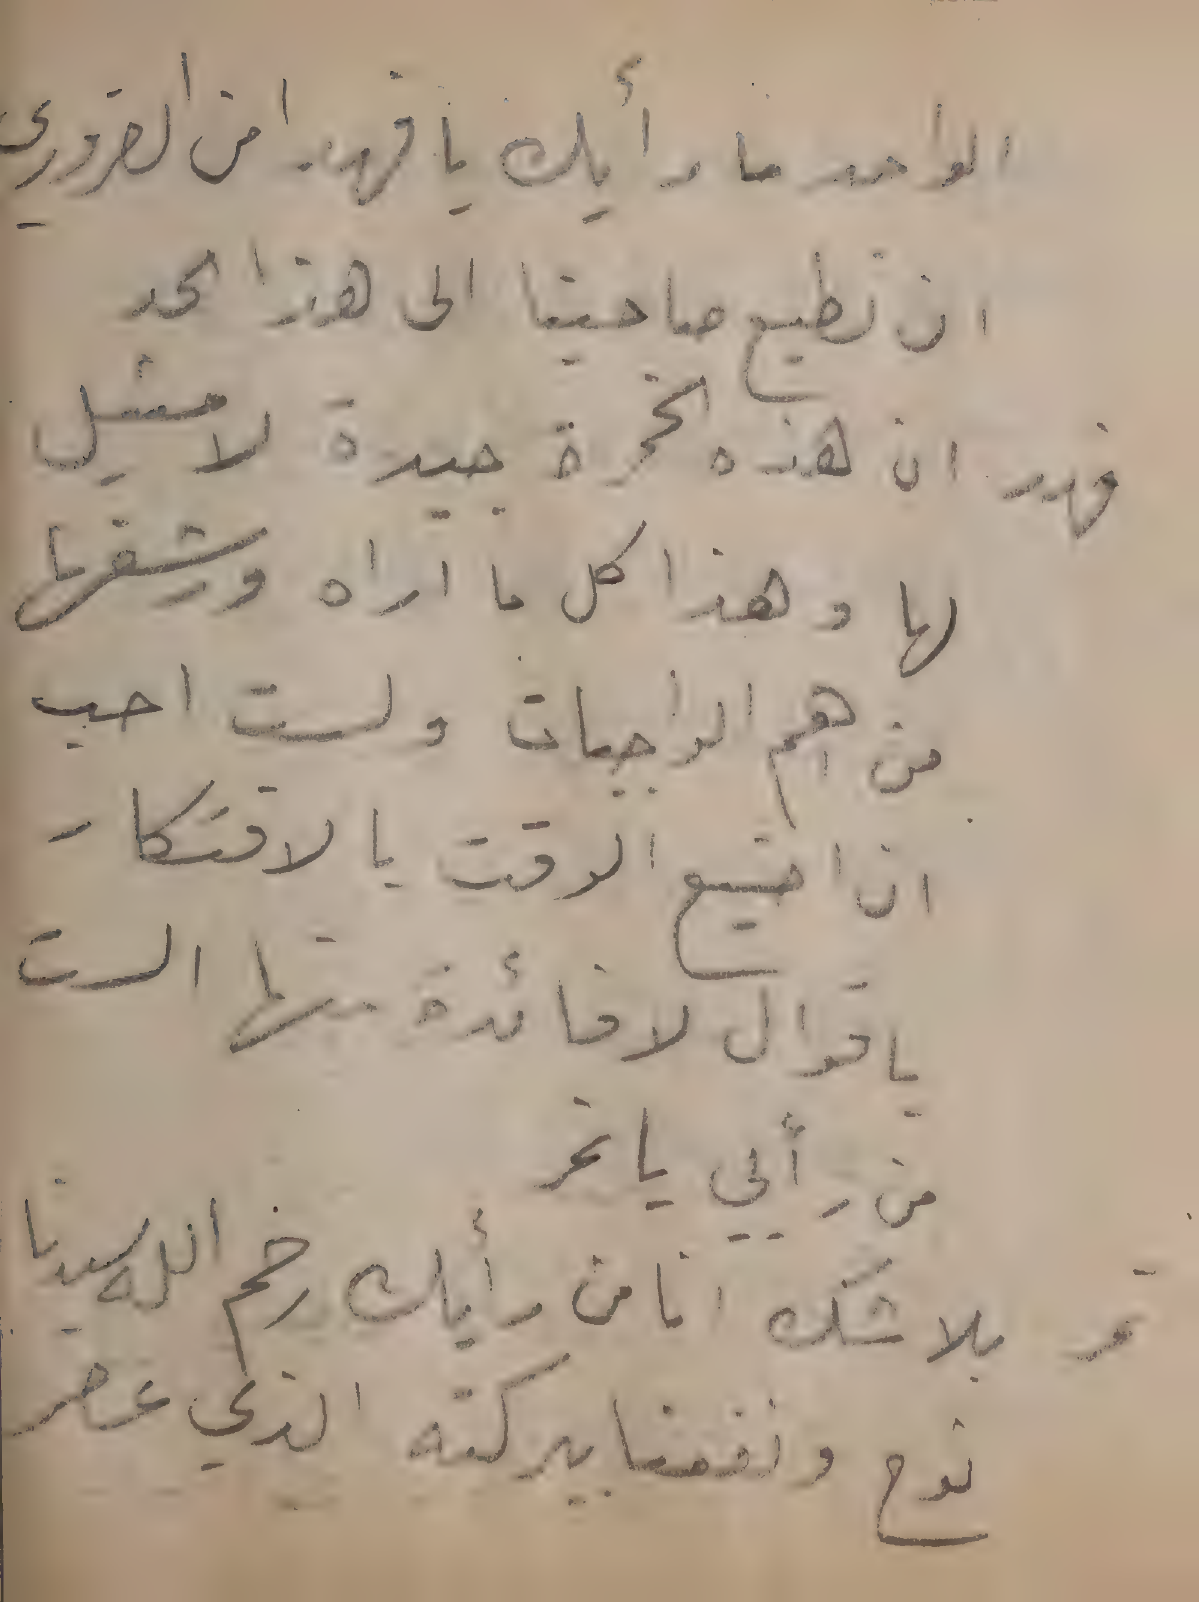 الواحد ما رأيك يا فهد امن الضروري
ان نطيع صاحبنا الى هذا الحد
فهد ان هذه الخمرة جيدة لا مثيل
لها وهذا كل ما اراه ورشفها
من اهم الواجبات ولست احب
ان اضيع الوقت بالافتكار
باقوال لا فائدة منها الست
من رأيي يا نمر
نمر بلا شك انا من رأيك رحم الله سيدنا
نوح ونفعنا ببركته الذي عصر